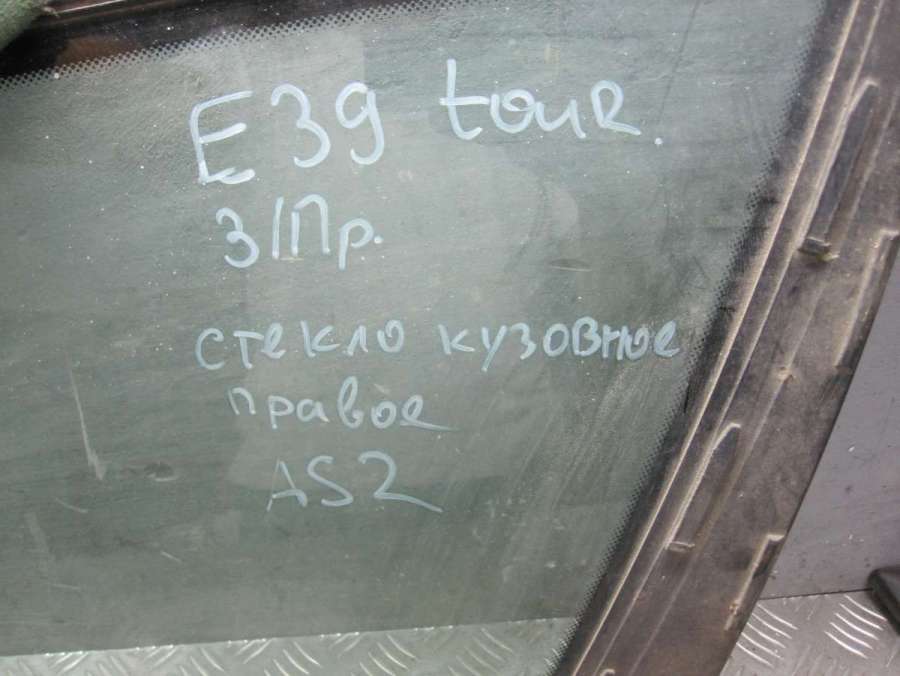 E39 touR.
З/Пр.
стекло кузовное
правое
AS2